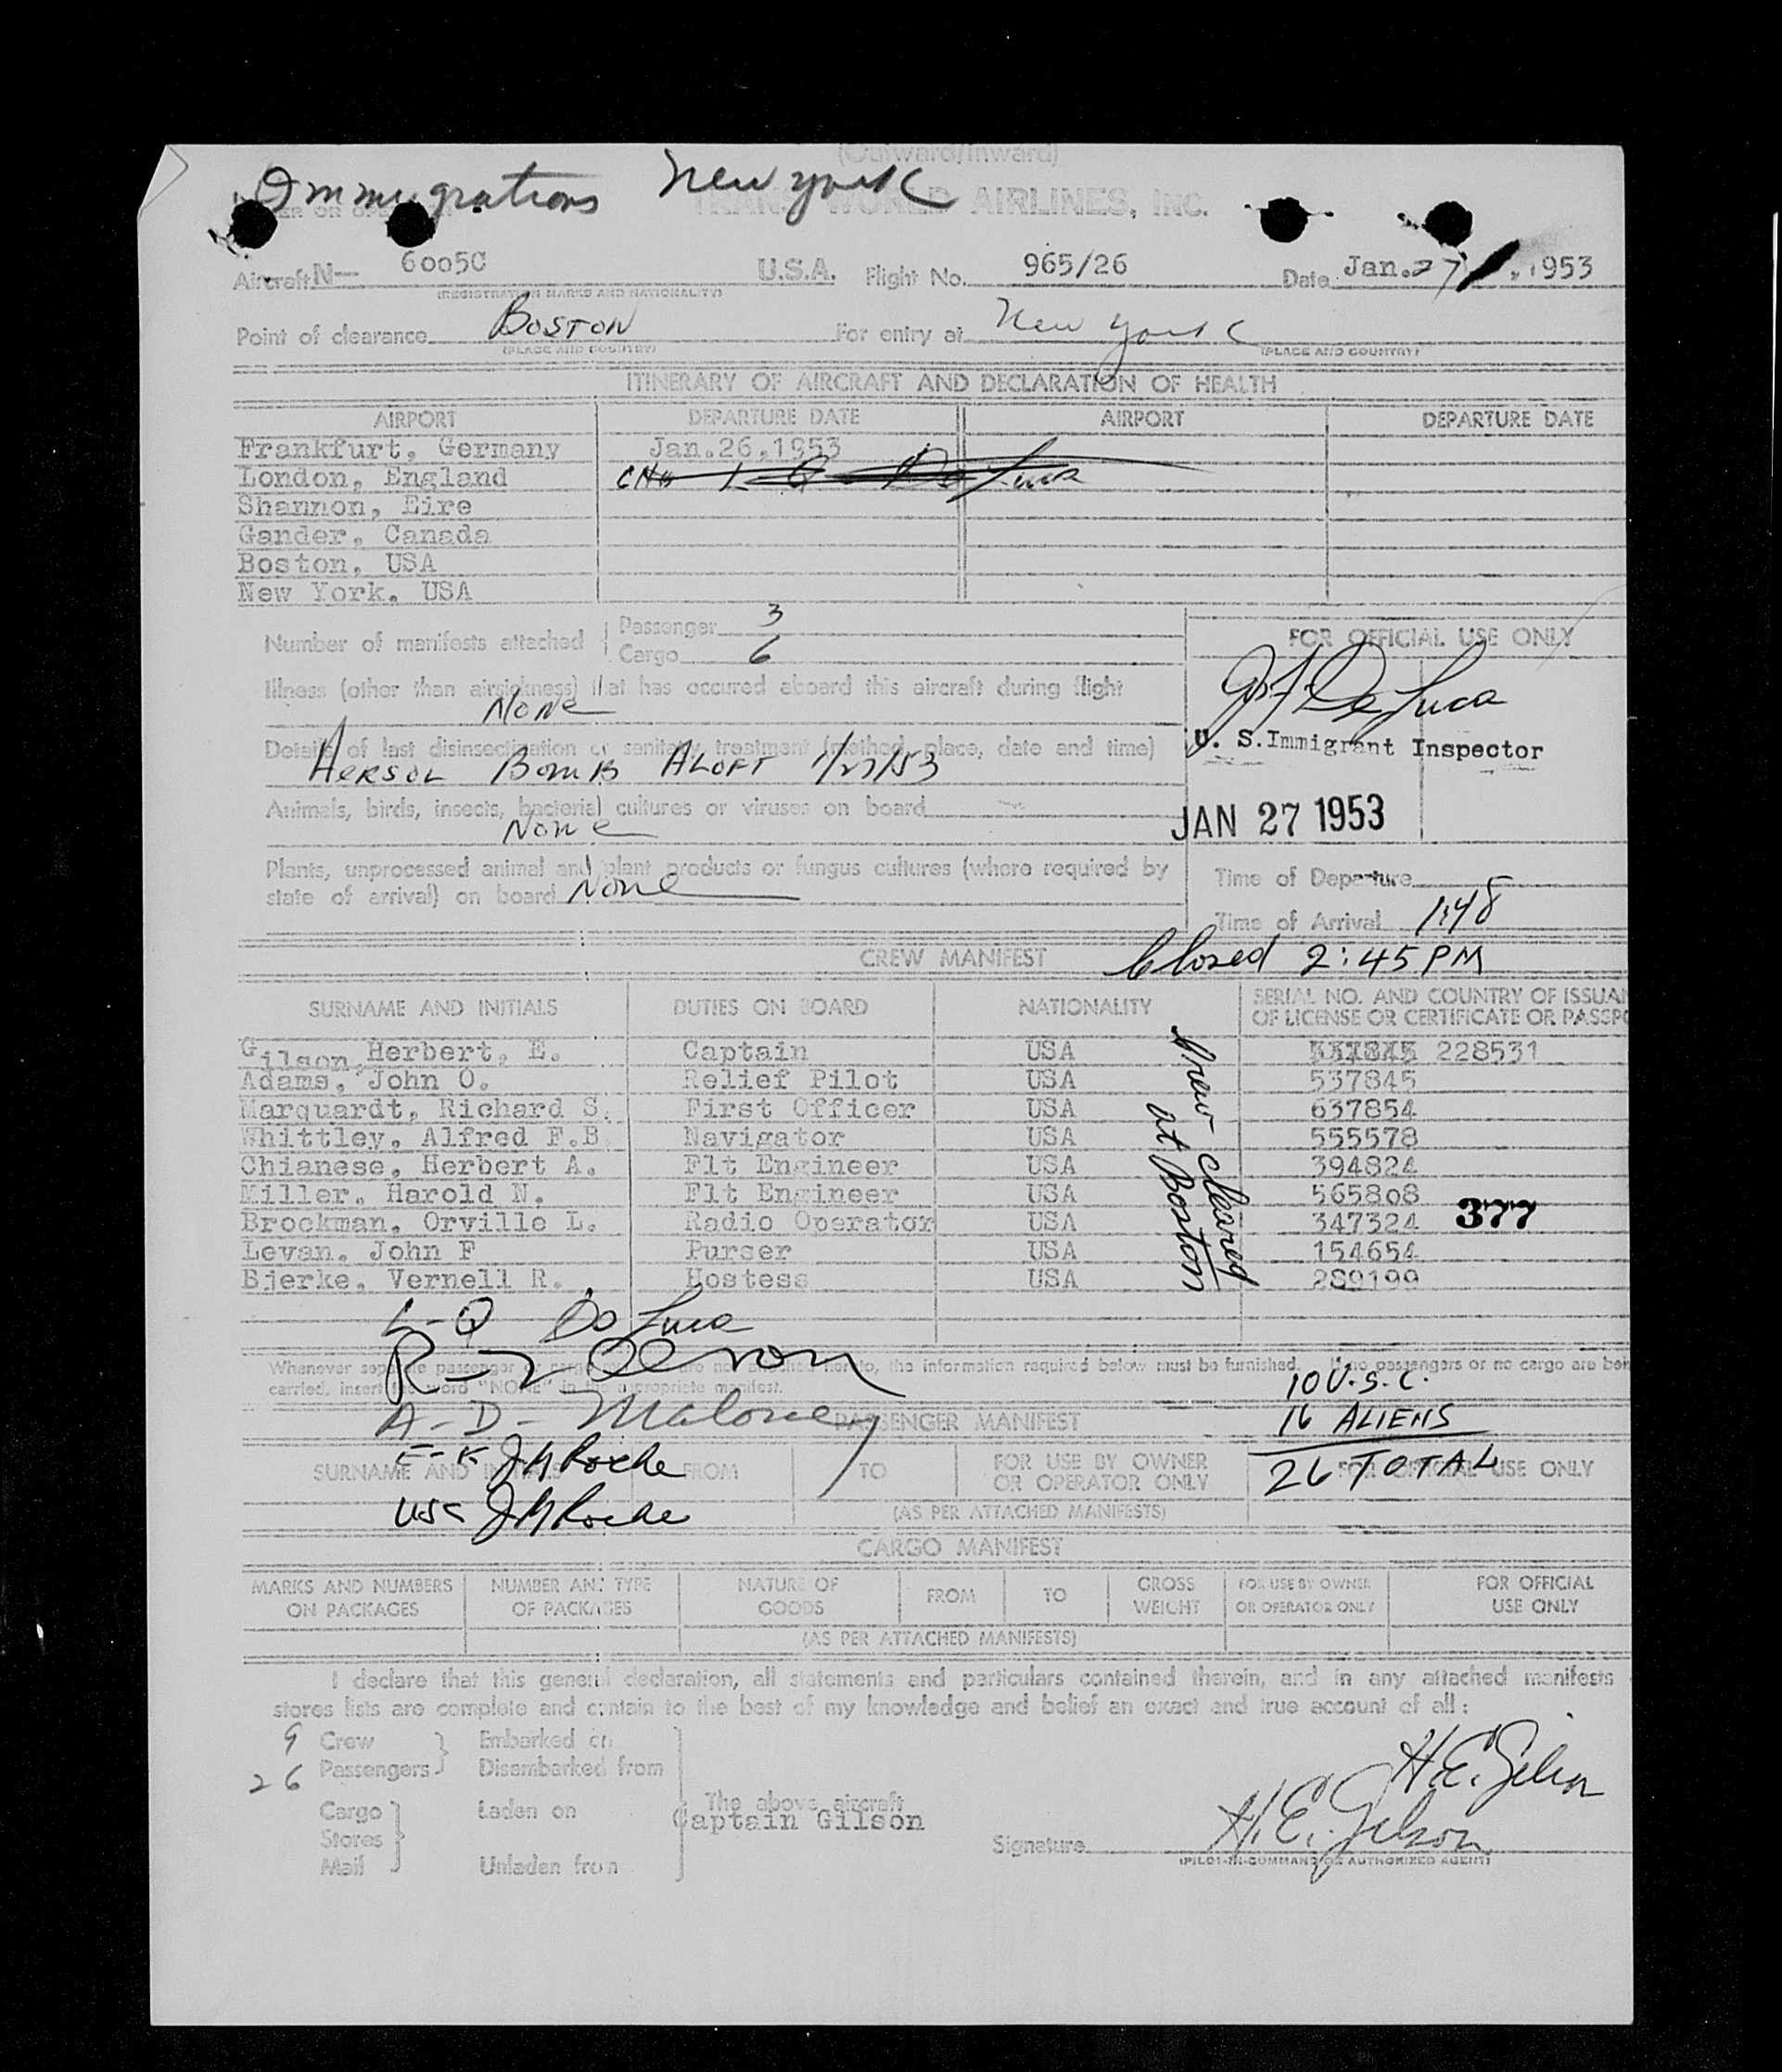 (Outward/Inward)
Immigrations New York
TRANS WORLD AIRLINES, INC.
Aircraft N— 6005C U.S.A. Flight No. 965/26 Date Jan. 27, 1953
(REGISTRATION MARKS AND NATIONALITY)
Point of clearance BOSTON For entry at New York
(PLACE AND COUNTRY) (PLACE AND COUNTRY)
ITINERARY OF AIRCRAFT AND DECLARATION OF HEALTH
AIRPORT DEPARTURE DATE AIRPORT DEPARTURE DATE
Frankfurt, Germany Jan.26,1953
London, England
Shannon, Eire
Gander, Canada
Boston, USA
New York, USA
Number of manifests attached Passenger 3
Cargo 6
FOR OFFICIAL USE ONLY
Illness (other than airsickness) that has occured aboard this aircraft during flight
None
De Luca
U. S. Immigrant Inspector
Details of last disinsectination or sanitary treatment (method, place, date and time)
AERSOL BOMB ALOFT 1/27/53
Animals, birds, insects, bacterial cultures or viruses on board
None
JAN 27 1953
Plants, unprocessed animal and plant products or fungus cultures (where required by
state of arrival) on board None
Time of Departure
Time of Arrival 1:48
CREW MANIFEST Closed 2:45 PM
SURNAME AND INITIALS DUTIES ON BOARD NATIONALITY SERIAL NO. AND COUNTRY OF ISSUAN
OF LICENSE OR CERTIFICATE OR PASSPO
Gilson, Herbert, E. Captain USA 228531
Adams, John O. Relief Pilot USA 537845
Marquardt, Richard S. First Officer USA 637854
Whittley, Alfred F.B. Navigator USA 555578
Chianese, Herbert A. Flt Engineer USA 394824
Miller, Harold N. Flt Engineer USA 565808
Brockman, Orville L. Radio Operator USA 347324 377
Levan, John F Purser USA 154654
Bjerke, Vernell R. Hostess USA 289199
Crew cleared
at Boston
L-Q De Luca
Whenever separate passenger the information required below must be furnished. If no passengers or no cargo are bei
carried, insert the word "NONE" in the appropriate manifest.
10 U.S.C.
A-D- Maloney
PASSENGER MANIFEST
16 ALIENS
26 TOTAL
E-K J M Roche
SURNAME AND INITIALS FROM TO FOR USE BY OWNER
OR OPERATOR ONLY
FOR OFFICIAL USE ONLY
USC J M Roche
(AS PER ATTACHED MANIFESTS)
CARGO MANIFEST
MARKS AND NUMBERS
ON PACKAGES NUMBER AND TYPE
OF PACKAGES NATURE OF
GOODS FROM TO GROSS
WEIGHT FOR USE BY OWNER
OR OPERATOR ONLY FOR OFFICIAL
USE ONLY
(AS PER ATTACHED MANIFESTS)
I declare that this general declaration, all statements and particulars contained therein, and in any attached manifests
stores lists are complete and contain to the best of my knowledge and belief an exact and true account of all:
9 Crew Embarked on
26 Passengers Disembarked from
H.E. Gilson
Cargo Laden on The above aircraft
Captain Gilson
Stores
Signature H.E. Gilson
Mail Unladen from
(PILOT-IN-COMMAND OR AUTHORIZED AGENT)